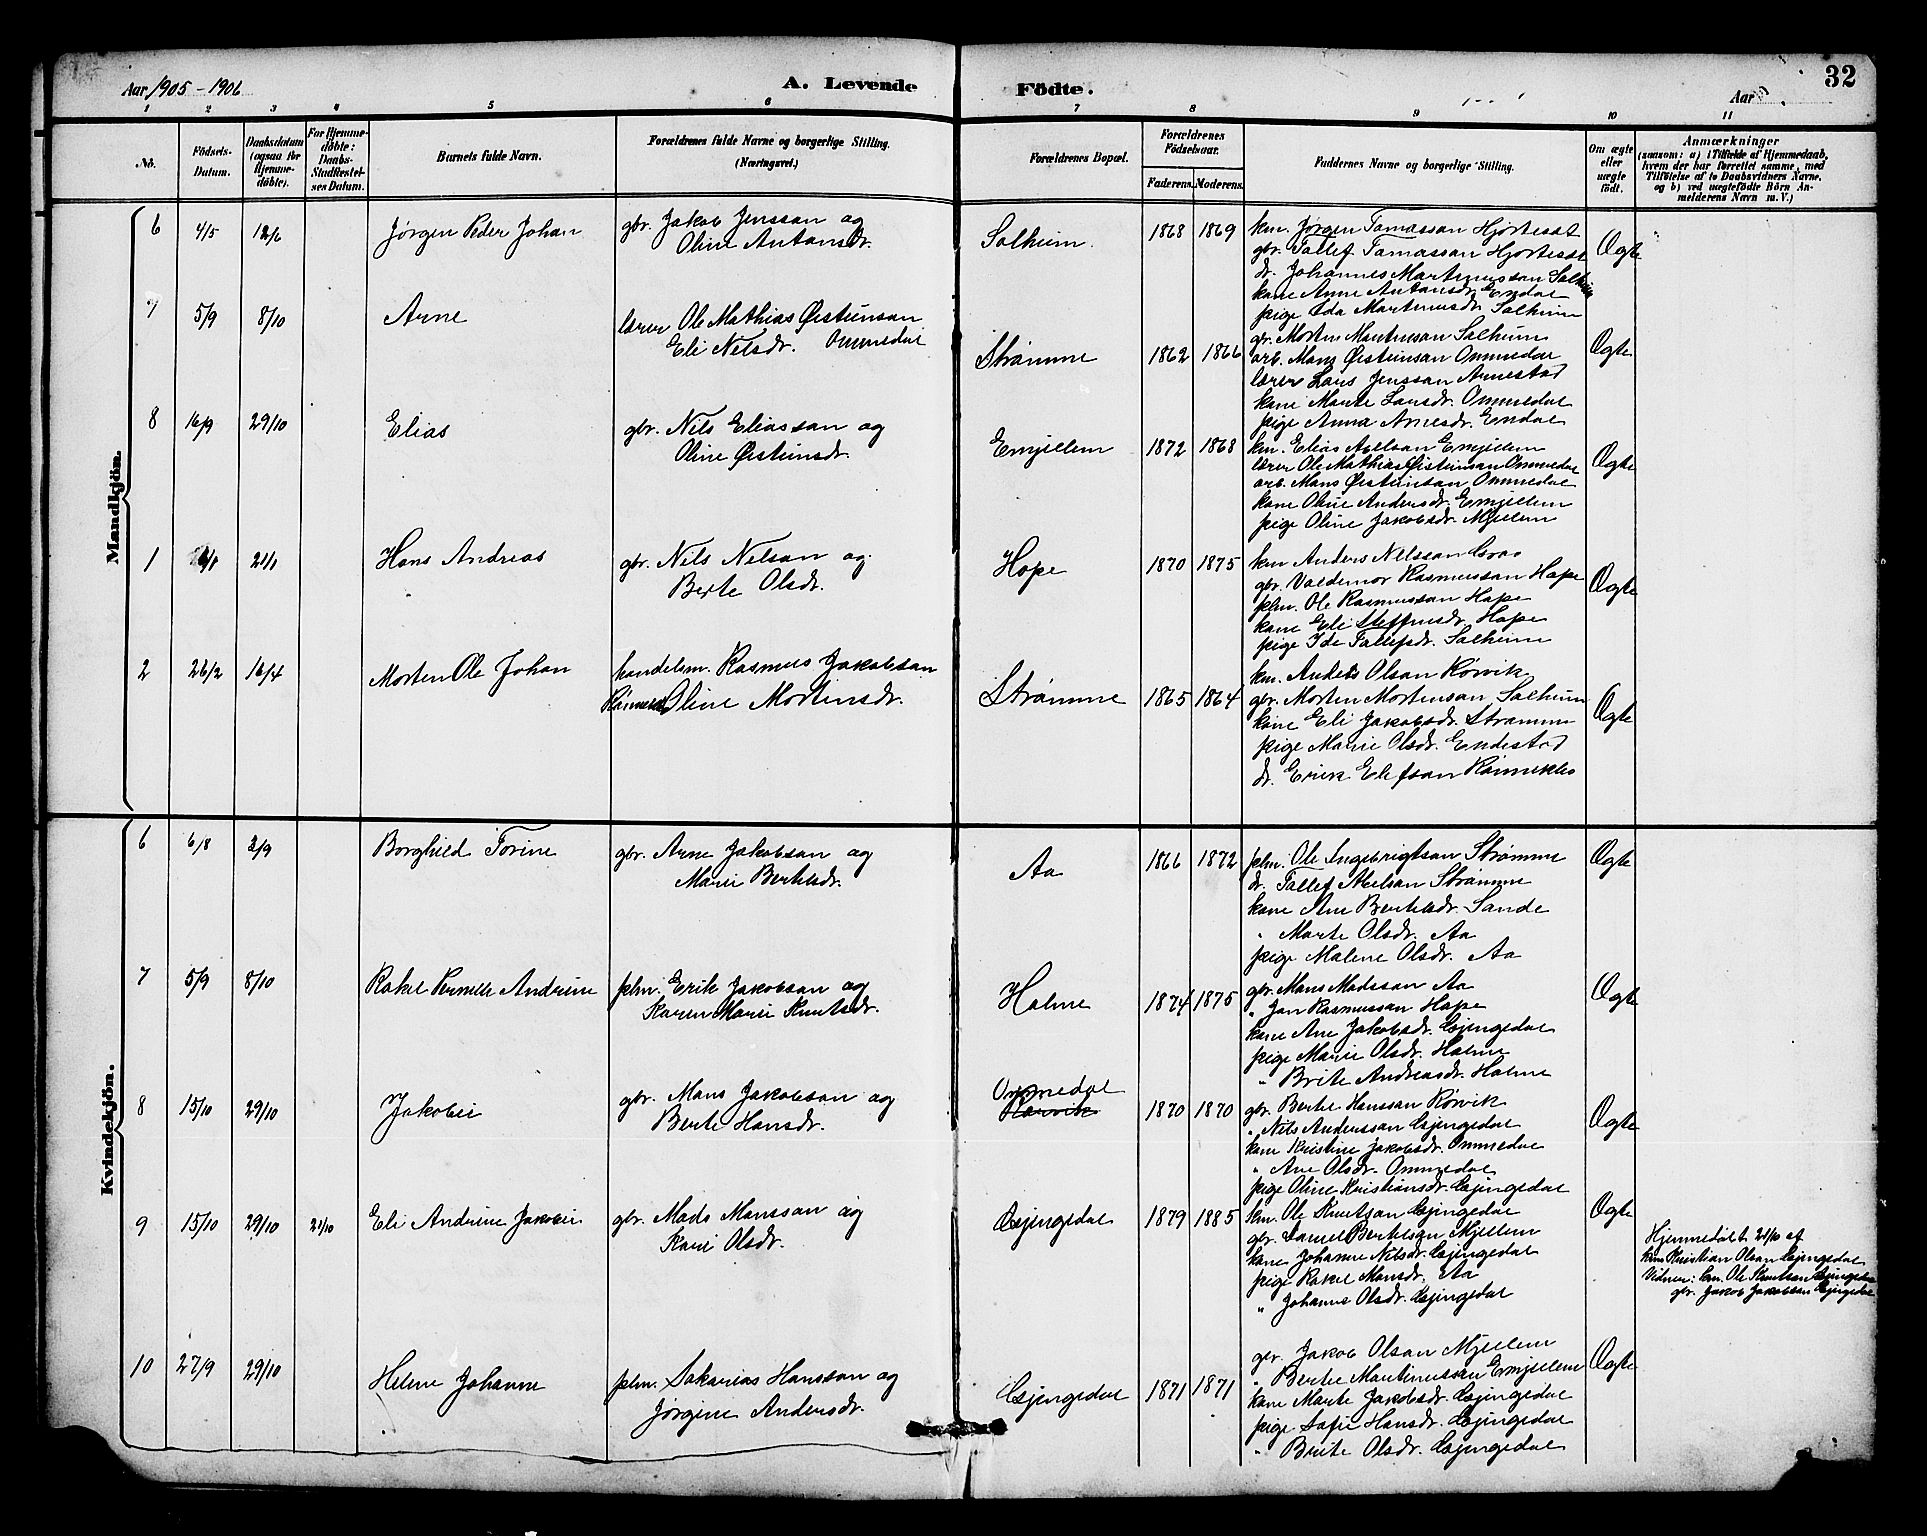 Aar 1905 - 1906
A. Levende
Födte.
Aar
32
1 2 3 4 5 6 7 8 9 10 11
No.
Födsels-
Datum.
Daabsdatum
(ogsaa for
Hjemme-
döbte).
For Hjemme-
döbte:
Daabs-
Stadfæstel-
ses Datum.
Barnets fulde Navn.
Forældrenes fulde Navne og borgerlige Stilling.
(Næringsvei.)
Forældrenes Bopæl.
Forældrenes
Födselsaar.
Faderens. Moderens.
Faddernes Navne og borgerlige Stilling.
Om ægte
eller
uægte
födt.
Anmærkninger
(saasom: a) i Tilfælde af Hjemmedaab,
hvem der har forrettet samme, med
Tilföielse af to Daabsvidners Navne,
og b) ved uægtefödte Börn An-
melderens Navn m. V.)
Mandkjön.
6 4/5 12/6 Jørgen Peder Johan
gbr. Jakob Jenssan og
Oline Antonsdr.
Solheim. 1868 1869
km. Jørgen Tomassan Hjortesæt
gbr. Tollef Tomassan Hjortesæt
dr. Johannes Martinussan Solheim
kone Anne Antonsdr. Endal
pige Ida Martinusdr. Solheim
Ægte
7 5/9 8/10 Arne
lærer Ole Mathias Øisteinsan
Eli Nelsdr. Ommedal
Strømme 1862 1866
gbr. Morten Martinsan Solheim
arb. Mons Øisteinsan Ommedal
lærer Lars Jenssan Arnestad
kone Marte Larsdr. Ommedal
pige Anna Arnesdr. Endal
Ægte
8 16/9 29/10 Elias
gbr. Nils Eliassan og
Oline Øisteinsdr.
Emjellem 1872 1868
km. Elias Abelsan Emjellem
lærer Ole Mathias Øisteinsan Ommedal
arb. Mons Øisteinsan Ommedal
kone Oline Andersdr. Emjellem
pige Oline Jakobsdr. Mjellem
Ægte
1 21/1 Hans Andreas
gbr. Nils Nelsan og
Berte Olsdr.
Hope 1870 1875
km Anders Nelssan
gbr. Valdemar Rasmussan Hope
plm. Ole Rasmussan Hope
kone Eli Steffensdr. Hope
pige Ide Tollefsdr. Solheim
Ægte
2 26/2 16/4 Morten Ole Johan
handelsm. Rasmus Jakobsan
Oline Mortensdr.
Strømme 1865 1864
km. Anders Olsan Rørvik
gbr. Morten Mortensan Solheim
kone Eli Jakobsdr. Strømme
pige Marie Olsdr. Endestad
dr. Erik Elefsan Rønnekleiv
Ægte
Kvindekjön.
6 6/8 3/9 Borghild Torine
gbr. Arne Jakobsan og
Marie Bertelsdr.
Aa 1866 1872
plm. Ole Ingebrigtsan Strømme
dr. Tollef Abelsan Strømme
kone Ane Bertelsdr. Sande
" Marte Olsdr. Aa
pige Malene Olsdr. Aa
Ægte
7 5/9 8/10 Rakel Pernille Andrine
plm. Erik Jakobsan og
Karen Marie Knutsdr.
Holme 1874 1875
gbr. Mons Madssan Aa
" Jon Rasmussan Hope
kone Ane Jakobsdr. Gjengedal
pige Marie Olsdr. Holme
" Brite Andreasdr. Holme
Ægte
8 15/10 29/10 Jakobie
gbr. Mons Jakobsan og
Berte Hansdr.
Ommedal
Rørvik
1870 1870
gbr. Bertel Hanssan Rørvik
" Nils Anderssan Gjengedal
kone Kristine Jakobsdr. Ommedal
" Ane Olsdr. Ommedal
pige Oline Kristiansdr. Gjengedal
Ægte
9 15/10 29/10 21/10 Eli Andrine Jakobie
gbr. Mads Monssan og
Kari Olsdr.
Gjengedal 1879 1885
km. Ole Knutsan Gjengedal
gbr. Daniel Bertelsan Mjellem
kone Johanne Nelsdr. Gjengedal
pige Rakel Monsdr. Aa
" Johanne Olsdr. Gjengedal
Ægte
Hjemmedøbt 21/10 af
km Kristian Olsan Gjengedal
Vidner: km. Ole Knutsan Gjengedal
gbr. Jakob Jakobsan Gjengedal
10 27/9 29/10 Helene Johanne
plm. Sakarias Hanssan og
Jørgine Andersdr.
Gjengedal 1871 1871
gbr. Jakob Olsan Mjellem
" Bertel Martinussan Emjellem
kone Marte Jakobsdr. Gjengedal
pige Sofie Hansdr. Gjengedal
" Brite Olsdr. Gjengedal
Ægte